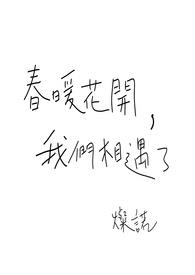 春暖花開，
我們相遇了
燦諾